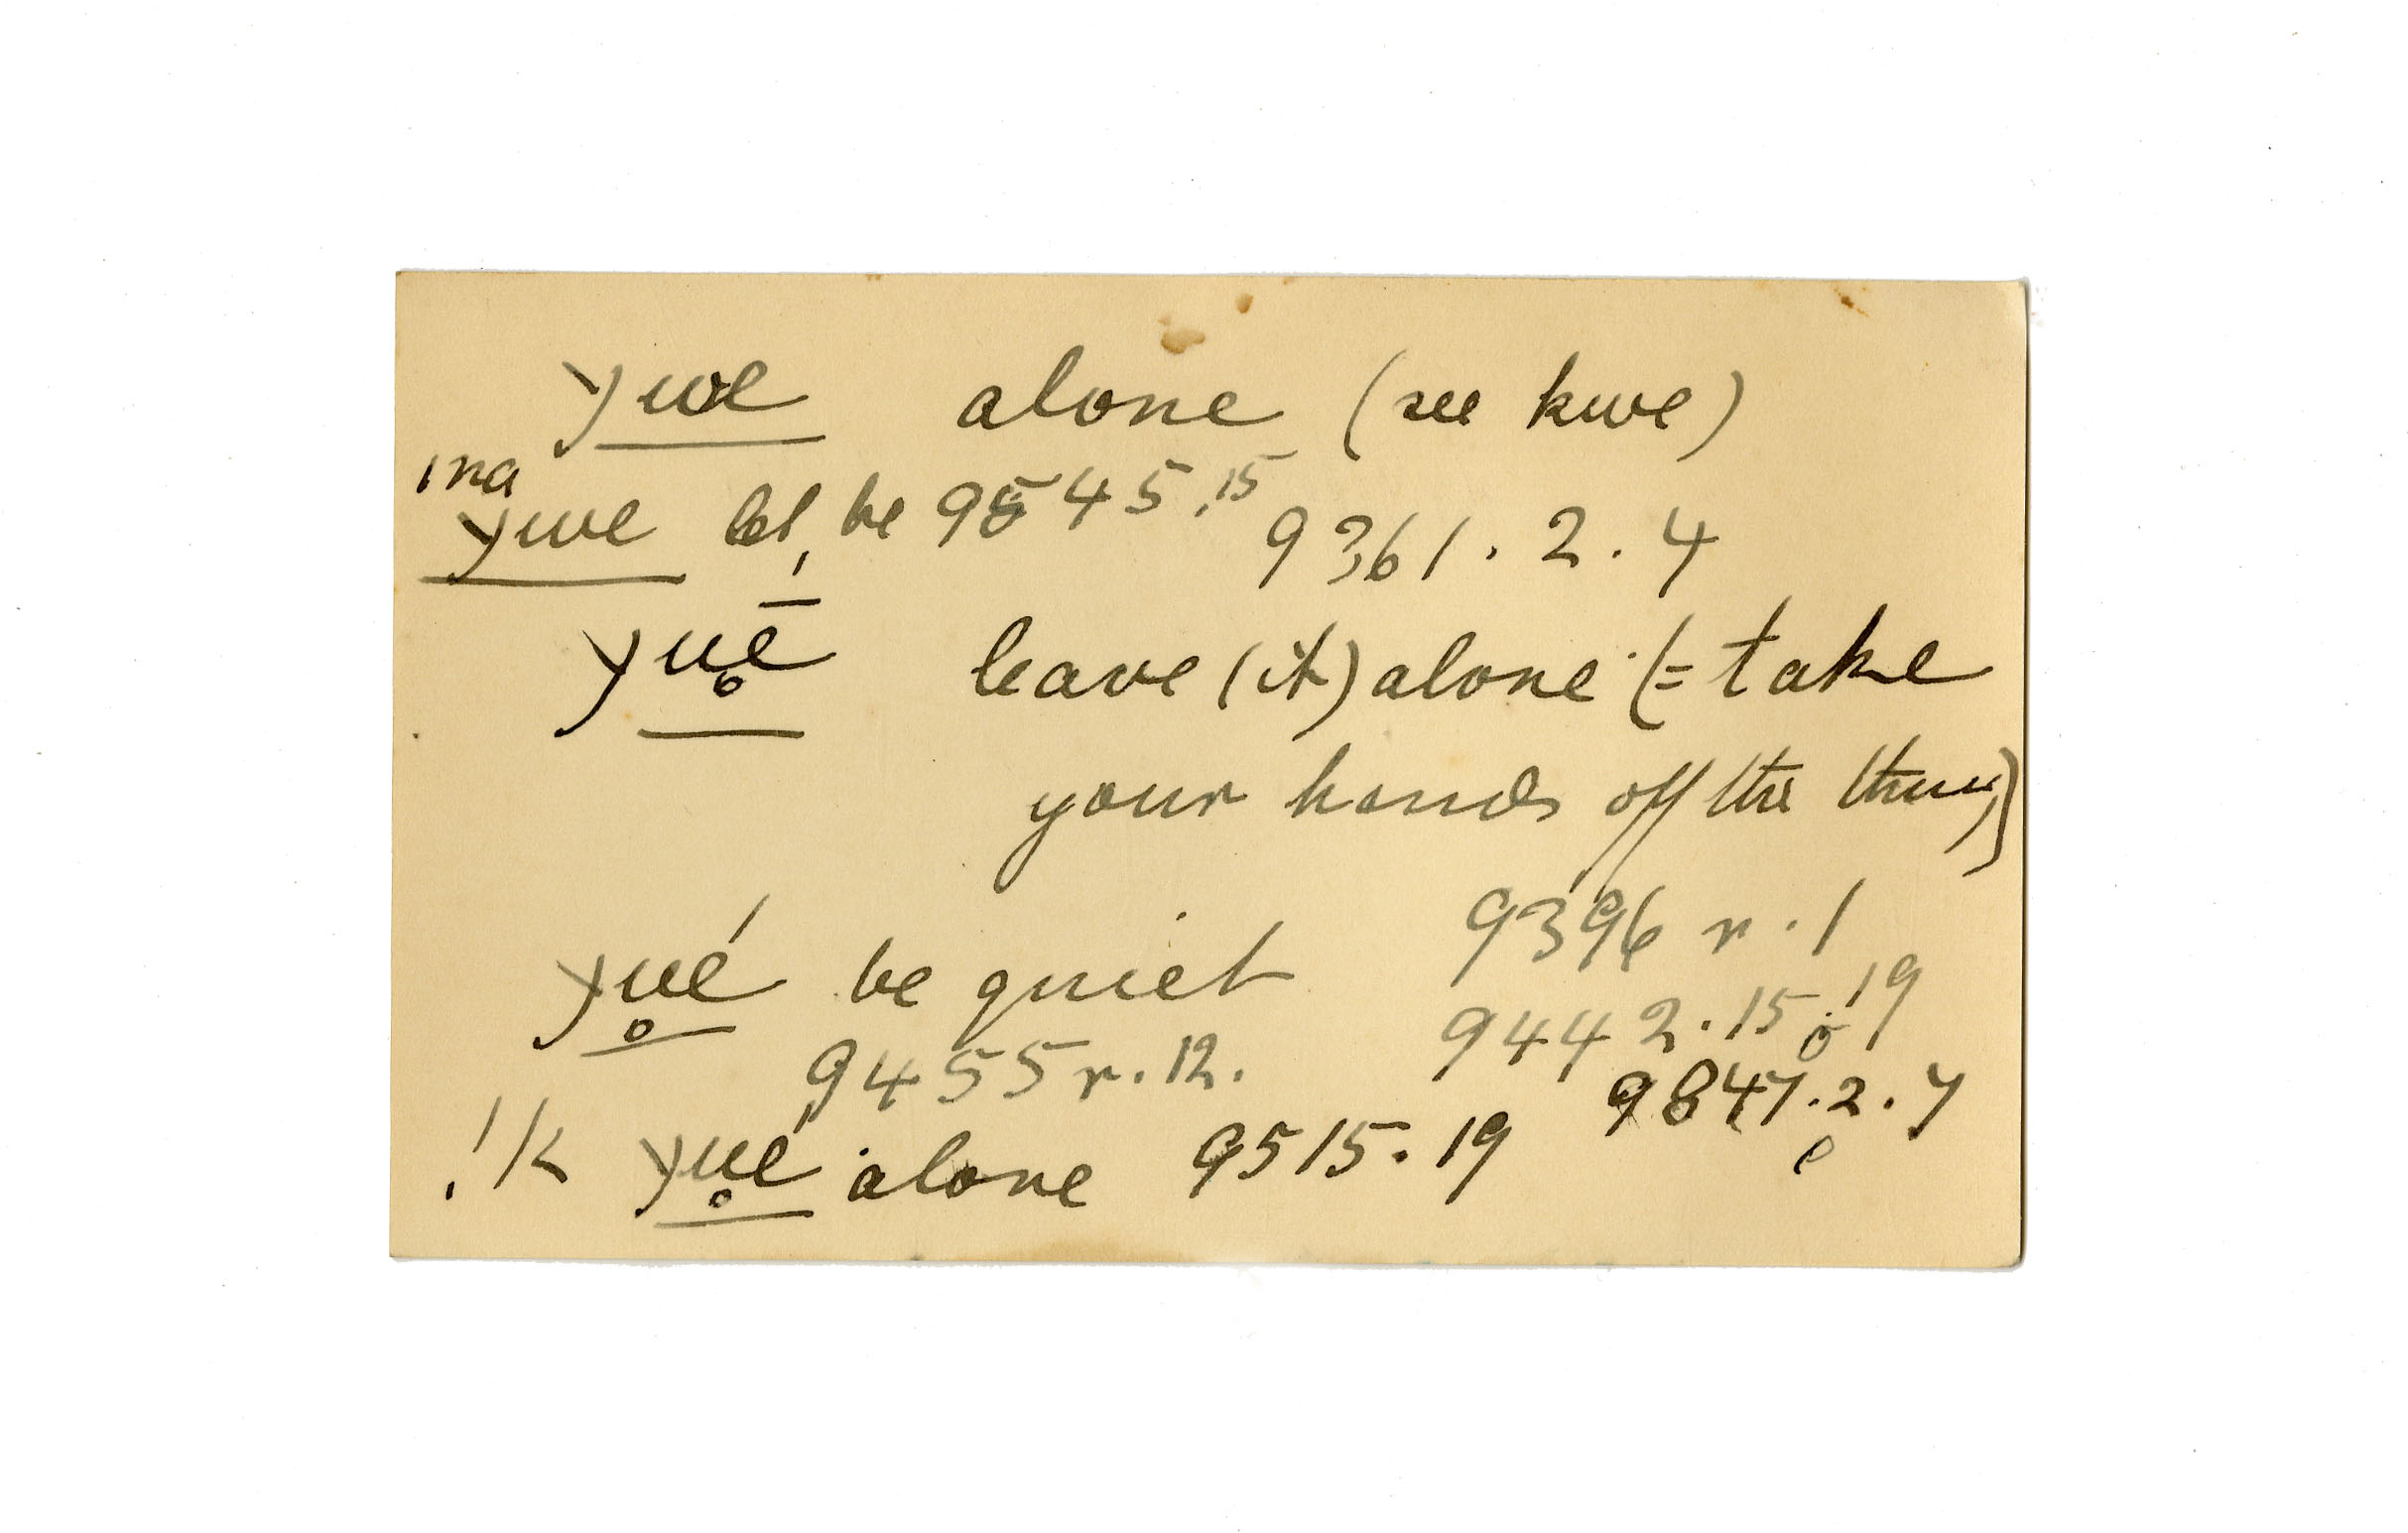 ywe alone (see kwe)
ına
ywe let, be 9545.15 9361.2.4
yu̥ē leave (it) alone (= take
your hands off the thing)
9396 r.1
yu̥é be quiet 9442.15.19
9455 r.12. 9847.2.7
!k yu̥é alone 9515.19